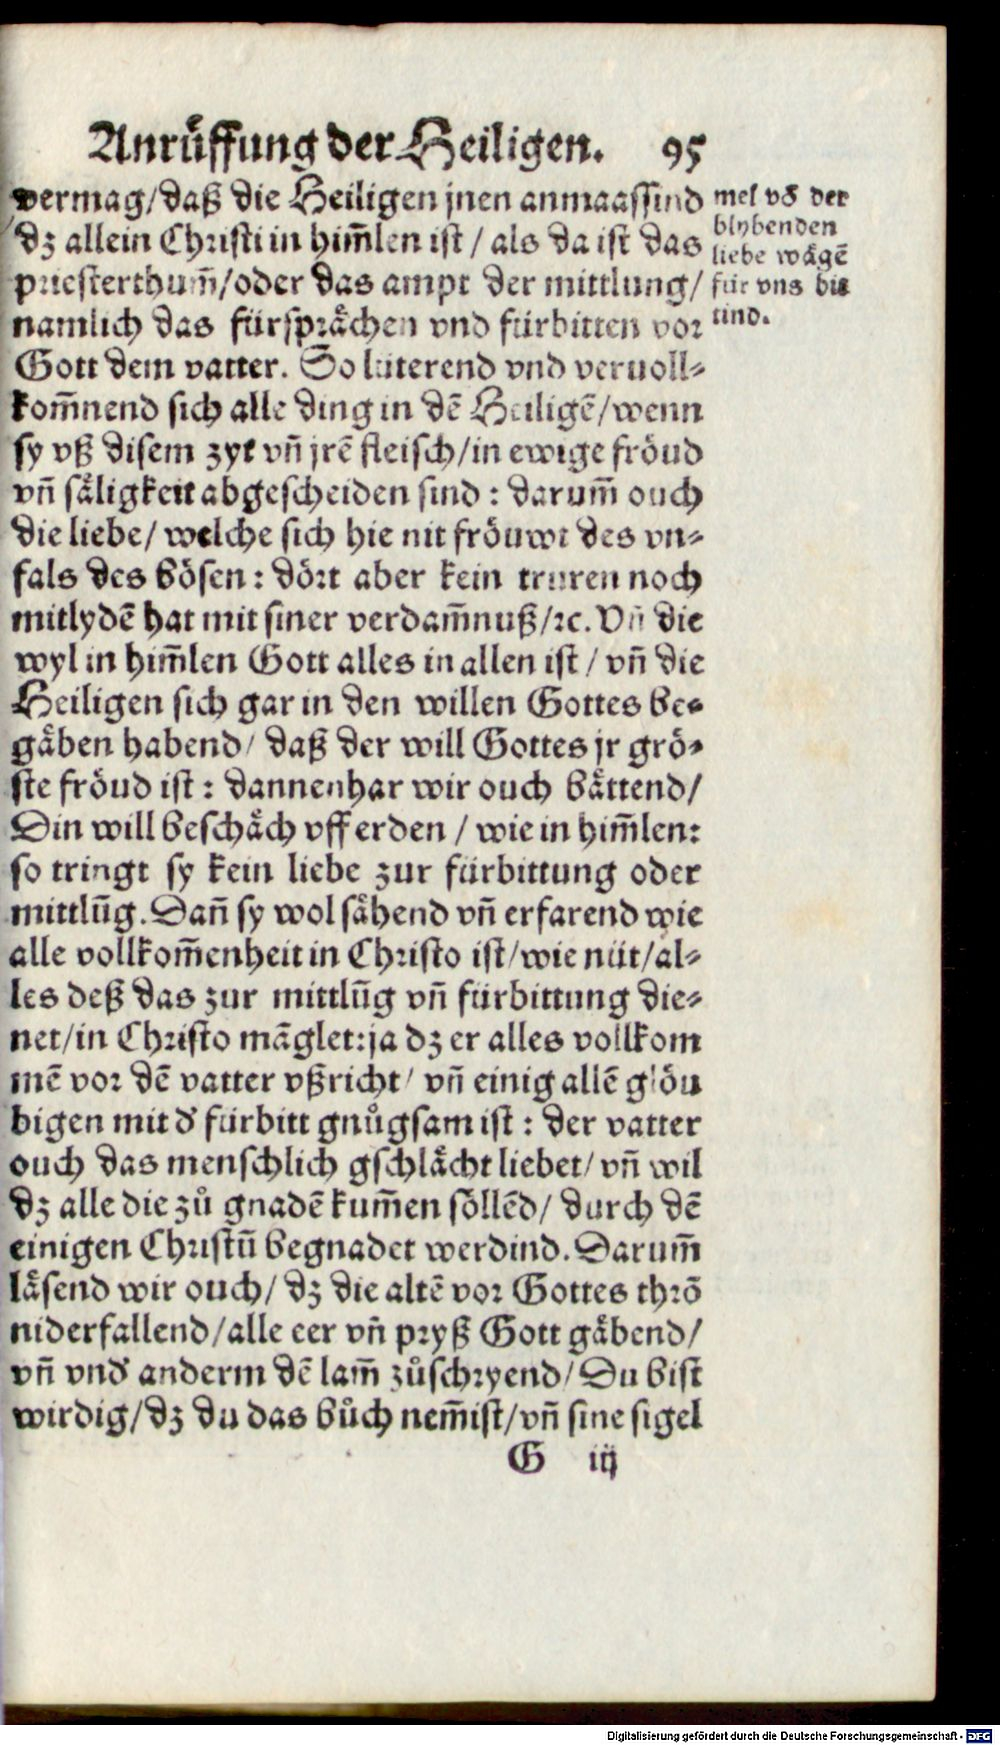 Anruͤffung der Heiligen. 95
vermag/daß die Heiligen jnen anmaassind
dz allein Christi in him̄len ist / als da ist das
priesterthum̄/oder das ampt der mittlung/
namlich das fürspraͤchen vnd fürbitten vor
Gott dem vatter. So luterend vnd veruoll-
kom̄nend sich alle ding in dē Heiligē/wenn
sy vß disem zyt vñ jrē fleisch/in ewige froͤud
vñ saͤligkeit abgescheiden sind : darum̄ ouch
die liebe/ welche sich hie nit froͤuwt des vn-
fals des boͤsen : doͤrt aber kein truren noch
mitlydē hat mit siner verdam̄nuß/ꝛc. Vñ die
wyl in him̄len Gott alles in allen ist / vñ die
Heiligen sich gar in den willen Gottes be-
gaͤben habend/ daß der will Gottes jr groͤ-
ste froͤud ist : dannenhar wir ouch baͤttend/
Din will beschaͤch vff erden / wie in him̄len:
so tringt sy kein liebe zur fürbittung oder
mittlūg. Dañ sy wol saͤhend vñ erfarend wie
alle vollkom̄enheit in Christo ist/wie nüt/al-
les deß das zur mittlūg vñ fürbittung die-
net/in Christo māglet: ja dz er alles vollkom
mē vor dē vatter vßricht/ vñ einig allē gloͤu
bigen mit d̕ fürbitt gnuͦgsam ist : der vatter
ouch das menschlich gschlaͤcht liebet/ vñ wil
dz alle die zuͦ gnadē kum̄en soͤllēd/ durch dē
einigen Christū begnadet werdind. Darum̄
laͤsend wir ouch/ dz die altē vor Gottes thrō
niderfallend/alle eer vñ pryß Gott gaͤbend/
vñ vnd̕ anderm dē lam̄ zuͦschryend/ Du bist
wirdig/dz du das buͦch nem̄ist/vñ sine sigel
G iij
mel vß der
blybenden
liebe waͤgē
für vns bit
tind.
Digitalisierung gefördert durch die Deutsche Forschungsgemeinschaft - DFG